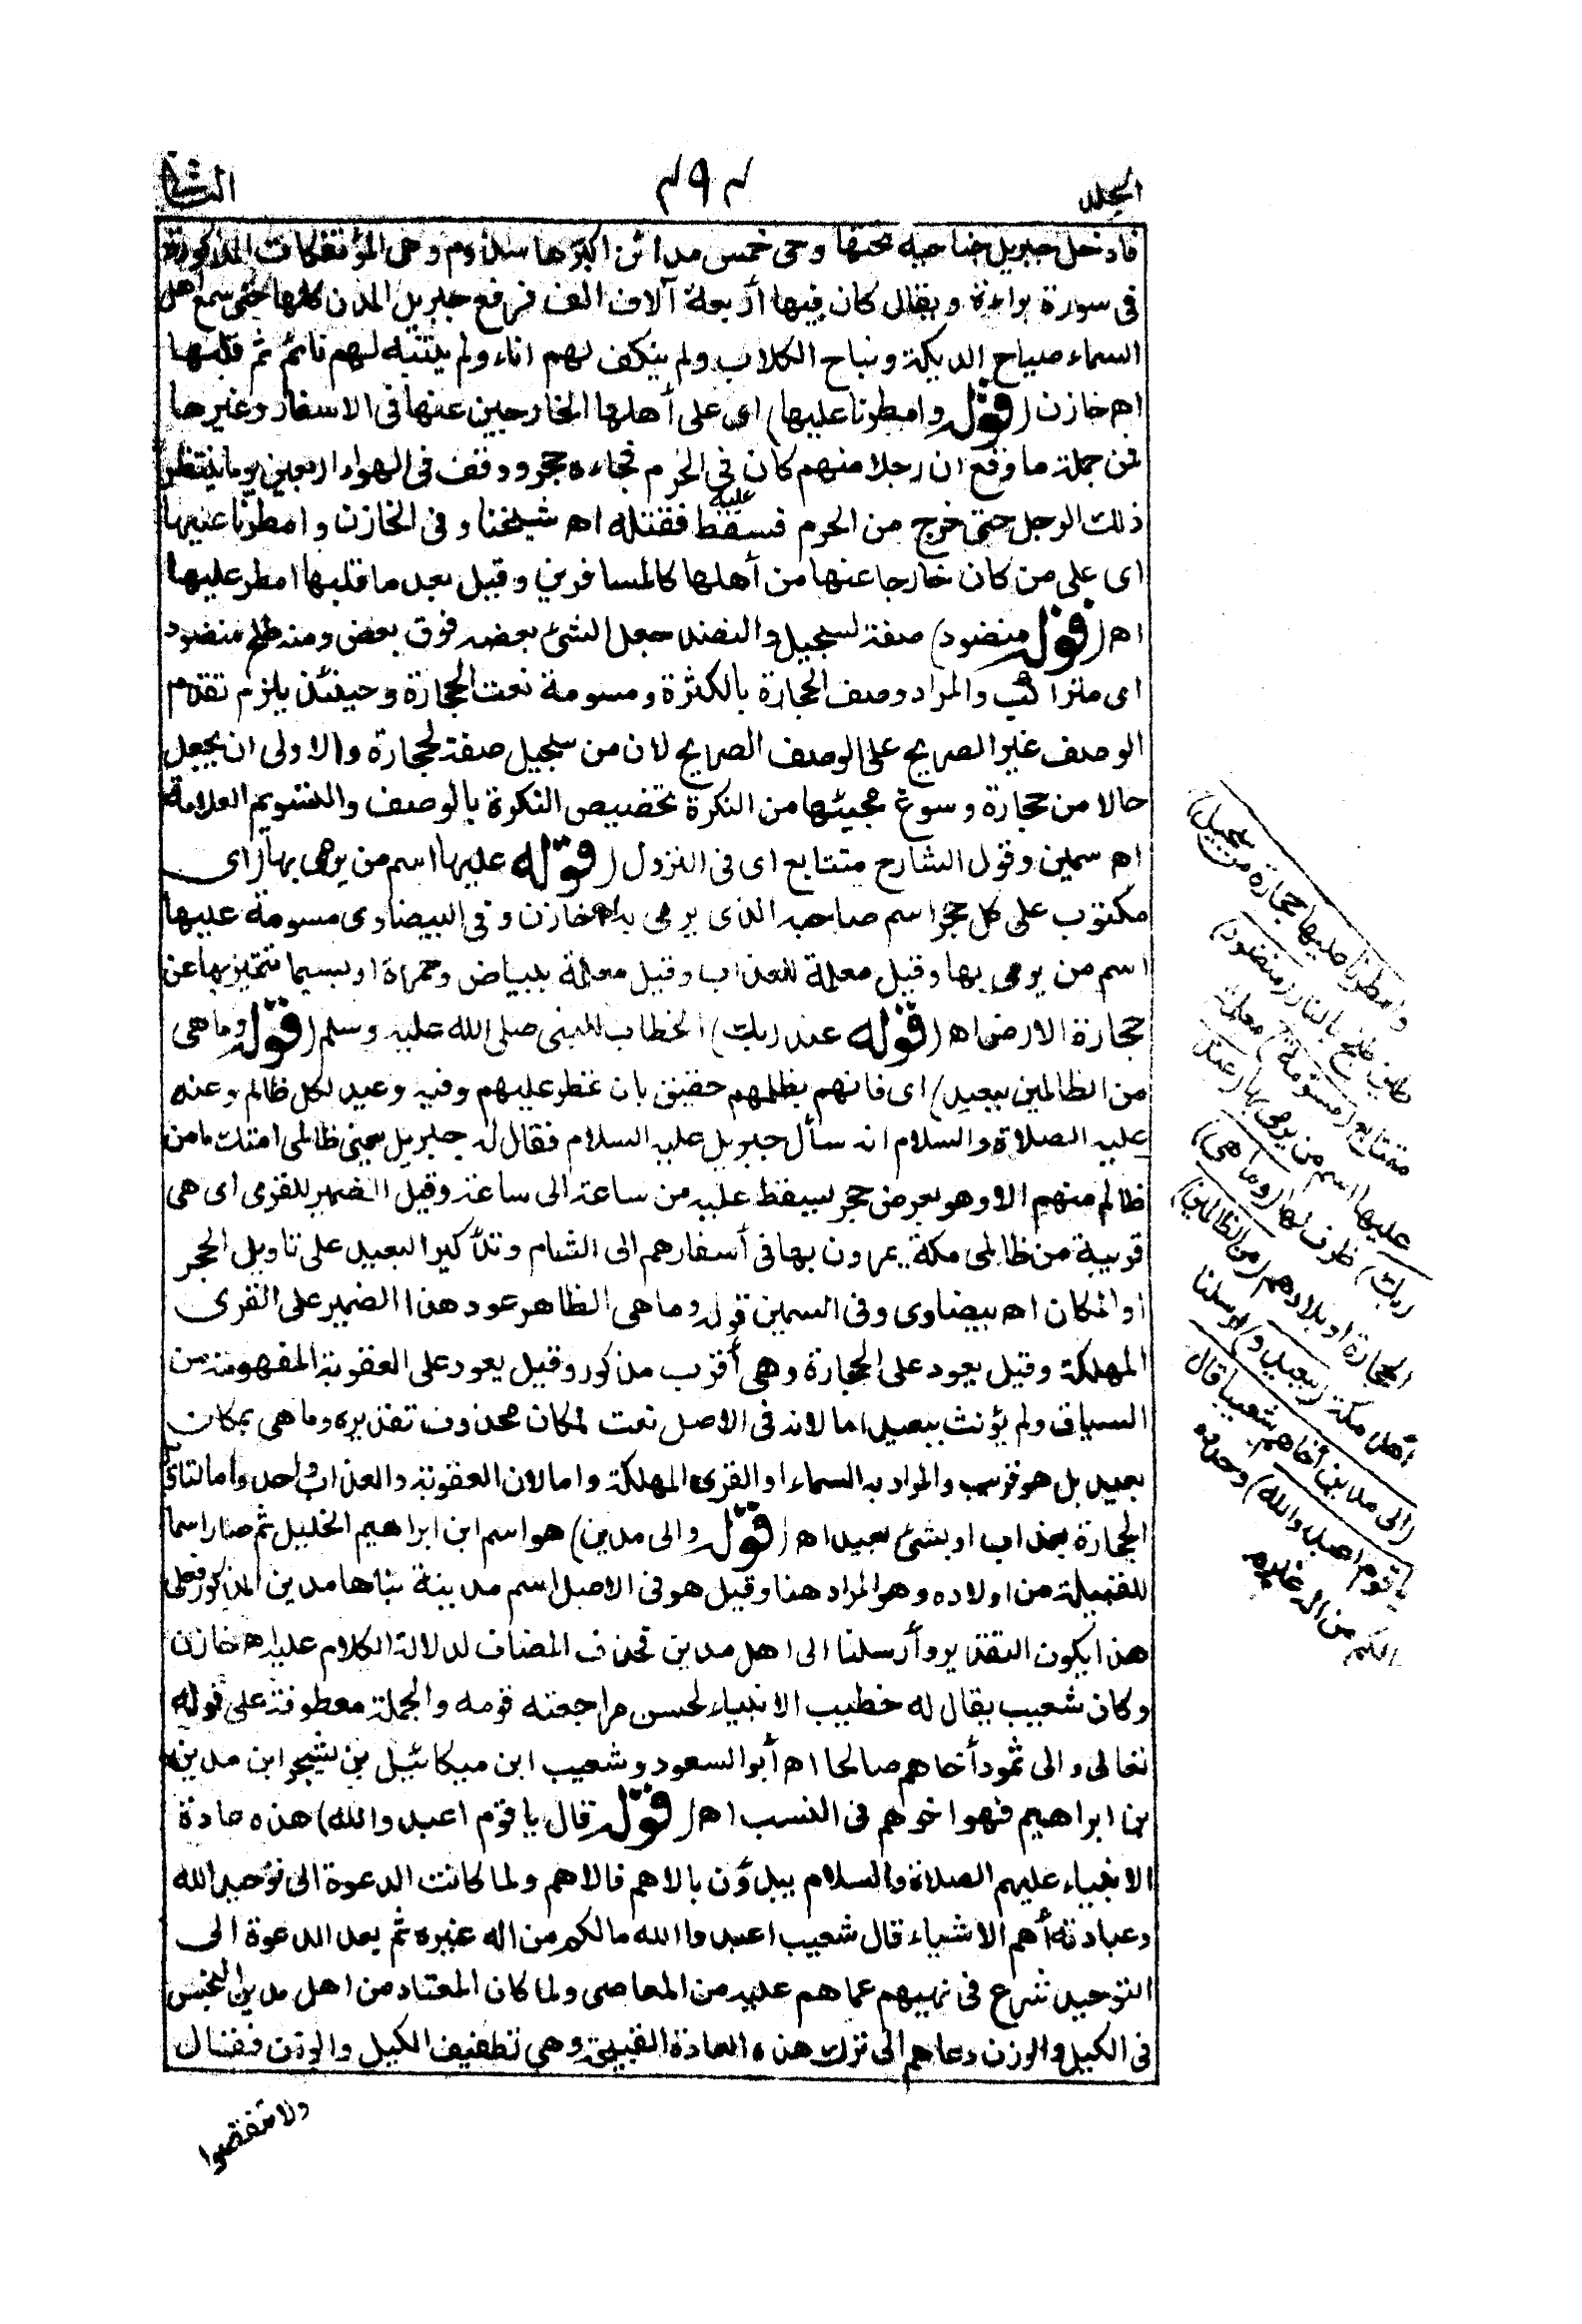 الجلد ٣٩٣ الثانى
فادخل جبريل جناحيه تحتها وهى خمس مدائن اكبرها سذوم وهى المؤتفكات المذكورة
فى سورة براءة ويقال كان فيها أربعة آلاف الف فرفع جبريل المدن كلها حتى سمع اهل
السماء صياح الديكة ونباح الكلاب ولم ينكف لهم اناء ولم ينتبه لهم نائم ثم قلبها
اه خازن (قوله وامطرنا عليها) اى على أهلها الخارجين عنها فى الاسفار وغيرها
فمن جملة ما وقع ان رجلا منهم كان فى الحرم فجاءه حجر ووقف فى الهواء اربعين يوما ينتظر
ذلك الرجل حتى خرج من الحرم فسقط عليه فقتله اه شيخنا وفى الخازن وامطرنا عليها
اى على من كان خارجا عنها من أهلها كالمسافرين وقيل بعد ما قلبها امطر عليها
اه (قوله منضود) صفة لسجيل والنضد جعل الشئ بعضه فوق بعض ومنه طلح منضود
اى متراكب والمراد وصف الحجارة بالكثرة ومسومة نعت لحجارة وحينئذ يلزم تقدم
الوصف غير الصريح على الوصف الصريح لان من سجيل صفة لحجارة والاولى ان يجعل
حالا من حجارة وسوغ مجيئها من النكرة تخصيص النكرة بالوصف والتسويم العلامة
اه سمين وقول الشارح متتابع اى فى النزول (قوله عليها اسم من يرمى بها) اى
مكتوب على كل حجر اسم صاحبه الذى يرمى به اه خازن وفى البيضاوى مسومة عليها
اسم من يرمى بها وقيل معلمة للعذاب وقيل معلمة ببياض وحمرة او بسيما تتميز بها عن
حجارة الارض اه (قوله عند ربك) الخطاب للنبى صلى الله عليه وسلم (قوله وما هى
من الظالمين ببعيد) اى فانهم بظلمهم حقيق بان تمطر عليهم وفيه وعيد لكل ظالم وعنه
عليه الصلاة والسلام انه سأل جبريل عليه السلام فقال له جبريل يعنى ظالمى امتك ما من
ظالم منهم الا وهو بعرض حجر يسقط عليه من ساعة الى ساعة وقيل الضمير للقرى اى هى
قريبة من ظالمى مكة يمرون بها فى أسفارهم الى الشام وتذكير البعيد على تاويل الحجر
او المكان اه بيضاوى وفى السمين قوله وما هى الظاهر عود هذا الضمير على القرى
المهلكة وقيل يعود على الحجارة وهى أقرب مذكور وقيل يعود على العقوبة المفهومة من
السياق ولم يؤنث ببعيد اما لانه فى الاصل نعت لمكان محذوف تقديره وما هى بمكان
بعيد بل هو قريب والمراد به السماء او القرى المهلكة واما لان العقوبة والعذاب واحد واما لتاويل
الحجارة بعذاب او بشئ بعيد اه (قوله والى مدين) هو اسم ابن ابراهيم الخليل ثم صار اسما
للقبيلة من اولاده وهو المراد هنا وقيل هو فى الاصل اسم مدينة بناها مدين المذكور فعلى
هذا يكون التقدير وأرسلنا الى اهل مدين فحذف المضاف لدلالة الكلام عليه اه خازن
وكان شعيب يقال له خطيب الانبياء لحسن مراجعته قومه والجملة معطوفة على قوله
تعالى والى ثمود أخاهم صالحا اه أبو السعود وشعيب ابن ميكائيل بن يشجر ابن مدين
بن ابراهيم فهو اخوهم فى النسب اه (قوله قال يا قوم اعبدوا الله) هذه عادة
الانبياء عليهم الصلاة والسلام يبدؤن بالاهم فالاهم ولما كانت الدعوة الى توحيد الله
وعبادته أهم الاشياء قال شعيب اعبدوا الله مالكم من اله غيره ثم بعد الدعوة الى
التوحيد شرع فى نهيهم عما هم عليه من المعاصى ولما كان المعتاد من اهل مدين البخس
فى الكيل والوزن دعاهم الى ترك هذه العادة القبيحة وهى تطفيف الكيل والوزن فقال
ولا تنقصوا
(وامطرنا عليها حجارة من سجيل)
طين طبخ بالنار (منضود)
متتابع (مسومة) معلمة
عليها اسم من يرمى بها (عند
ربك) ظرف لها (وما هى)
الحجارة او بلادهم (من الظالمين)
أهل مكة (ببعيد و) ارسلنا
(الى مدين أخاهم شعيبا قال
يا قوم اعبدوا الله) وحدوه
(مالكم من اله غيره